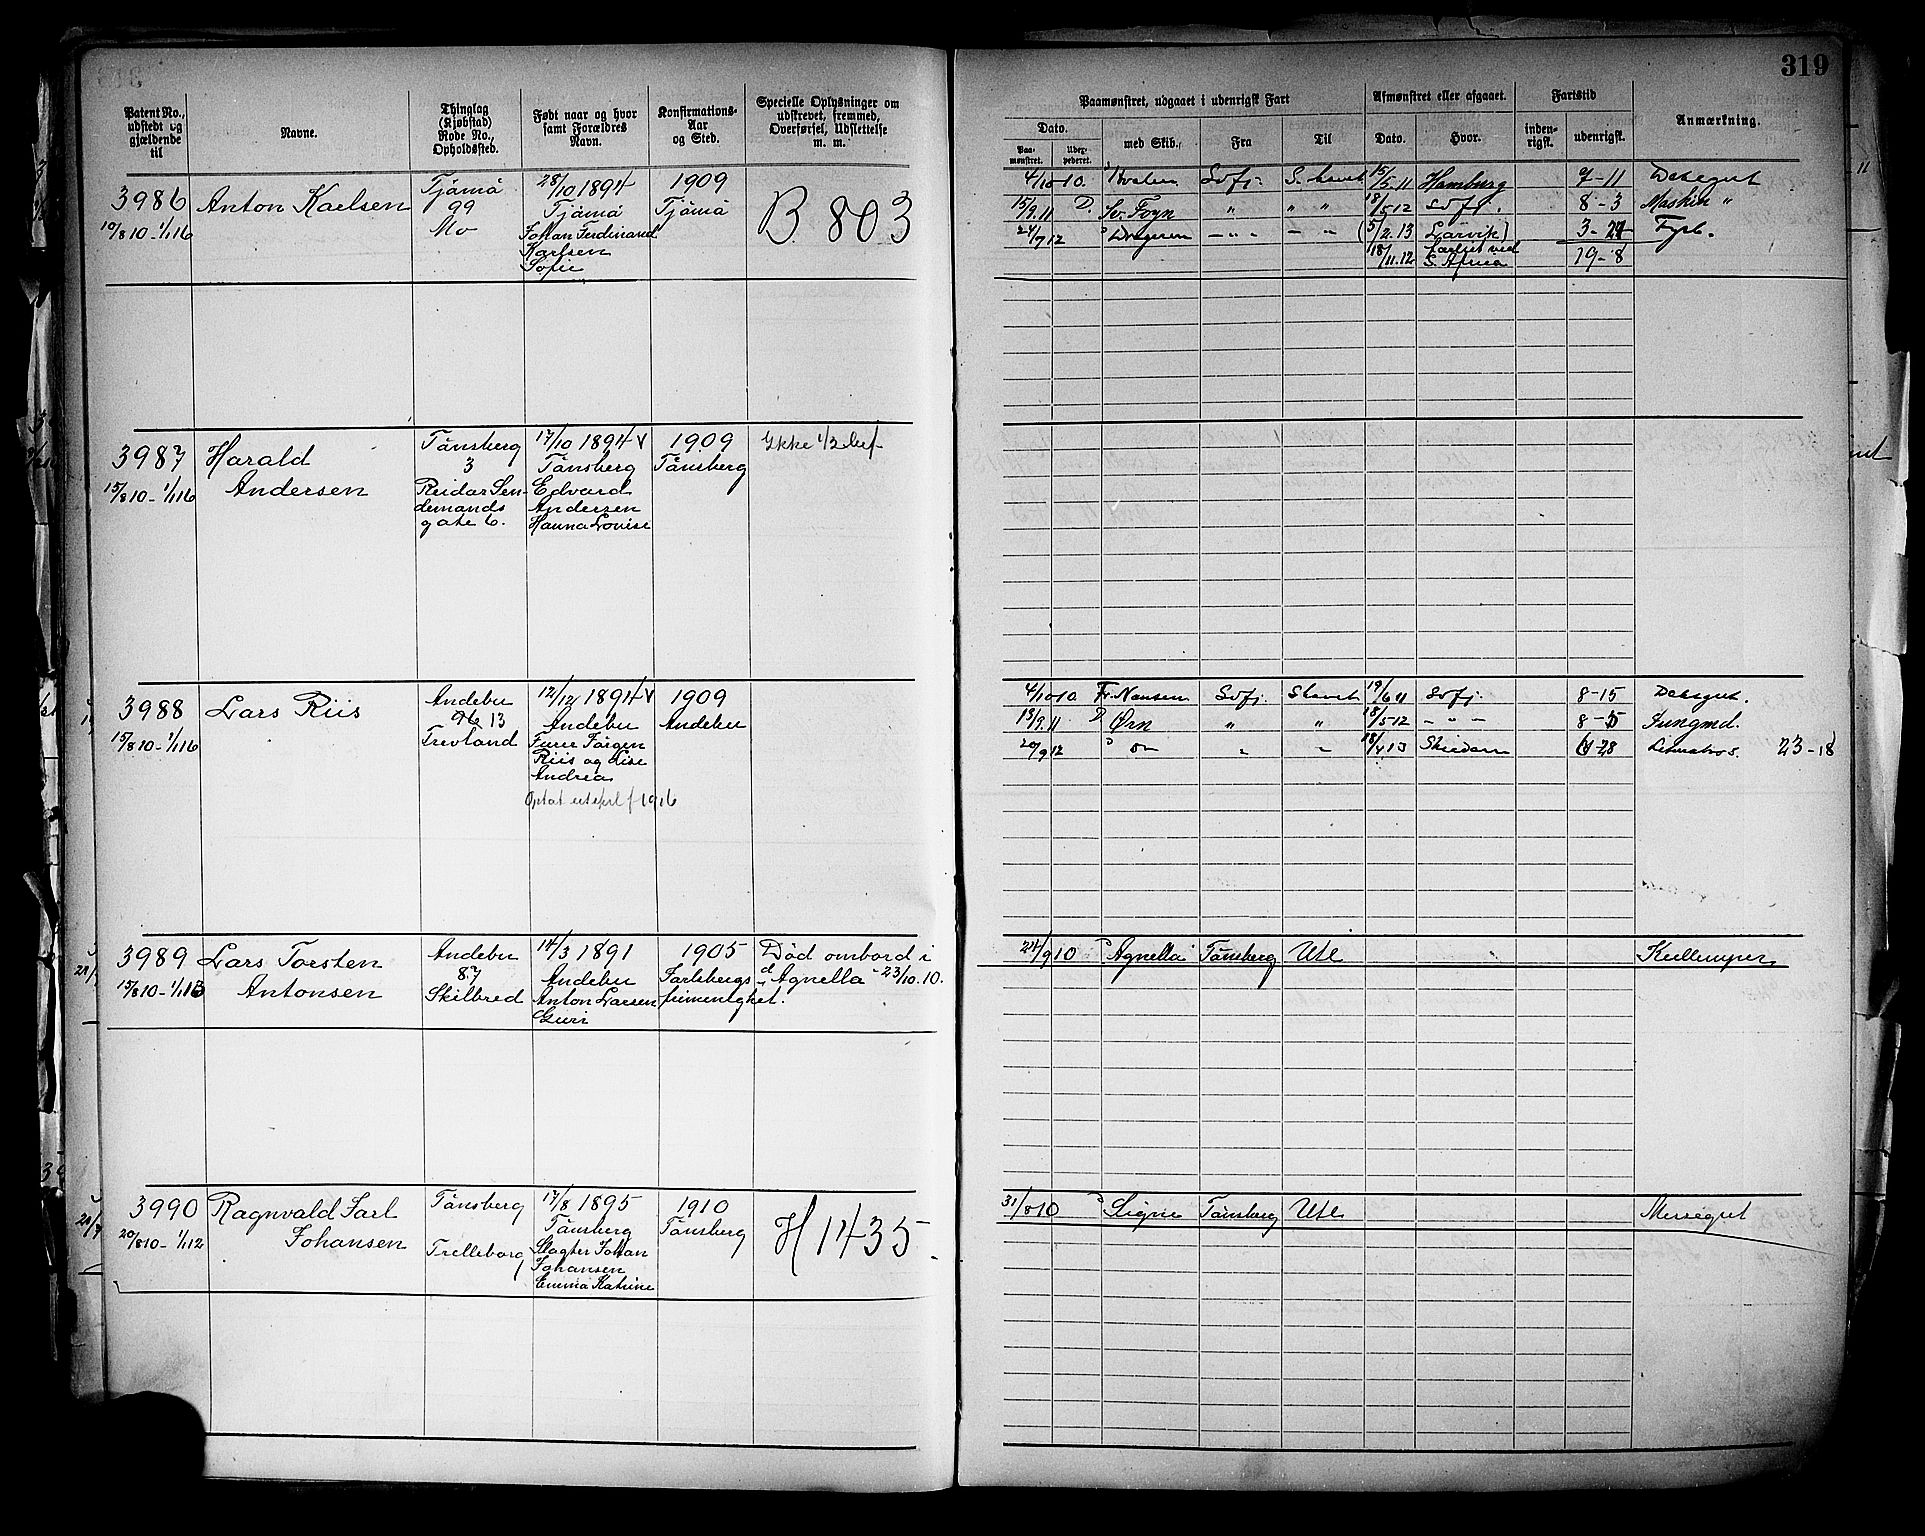 319
Patent No., udstedt og gjældende til
Navne.
Thinglag (Kjøbstad) Rode No., Opholdssted.
Født naar og hvor samt Forældres Navn.
Konfirmations-Aar og Sted.
Specielle Oplysninger om udskrevet, fremmed, Overførsel, Udslettelse m. m.
Paamønstret, udgaaet i udenrigsk Fart
Dato.
Paa-mønstret.
med Skib.
Fra
Til
Afmønstret eller afgaaet.
Dato.
Hvor.
Fartstid
inden-rigsk.
udenrigsk.
Anmærkning.
3986
10/8 10 - 1/1 16
Anton Karlsen
Tjømø
99
Mo
28/10 1894
Tjømø
Johan Ferdinand
Karlsen
Sofie
1909
Tjømø
B. 803
4/10 10. Hvalen Sdfj. S. havet 15/5 11 Hamburg 7-11 Dæksgut
15/9 11 D. Sv. Foyn " " " 18/5 12 Sdfj. 8-3 Maskin "
24/7 12 - " - - " (5/2 13 Larvik) Fyrb.
18/11.12 S. Africa 19-8
3987
15/8 10 - 1/1 16
Harald
Andersen
Tønsberg
3
Reidar Sen-
demands
gate 6.
17/10 1894 v
Tønsberg
Edvard
Andersen
Hanna Lovise
1909
Tønsberg
Ikke 1/2 bef
3988
15/8 10 - 1/1 16
Lars Riis
Andebu
96 13
Trevland
12/12 1894 v
Andebu
Jørgen
Riis og Lise
Andrea
1916
1909
Andebu
4/10 10. Fr. Nansen Sdfj. S havet 19/6 11 Sdfj. 8-15 Dæksgut.
13/9 11 D Ørn " " 18/5 12 - " - Jungmd.
20/9 12 " do " " Skiedam 23-18
3989
15/8 10 - 1/1 13
Lars Torsten
Antonsen
Andebu
87
Skilbred
14/3 1891
Andebu
Anton Larsen
Guri
1905
Jarlsbergs
frimenighet.
Død ombord i
d/s "Agnella" 23/10.10.
24/9 10 D Agnella Tønsberg Ute Kullemper
3990
20/8 10 - 1/1 12
Ragnvald Jarl
Johansen
Tønsberg
Trelleborg
17/8 1895
Tønsberg
Slagter Johan
Johansen
Emma Katrine
1910
Tønsberg
H 1435
31/8 10 D Signe Tønsberg Ute Messegut